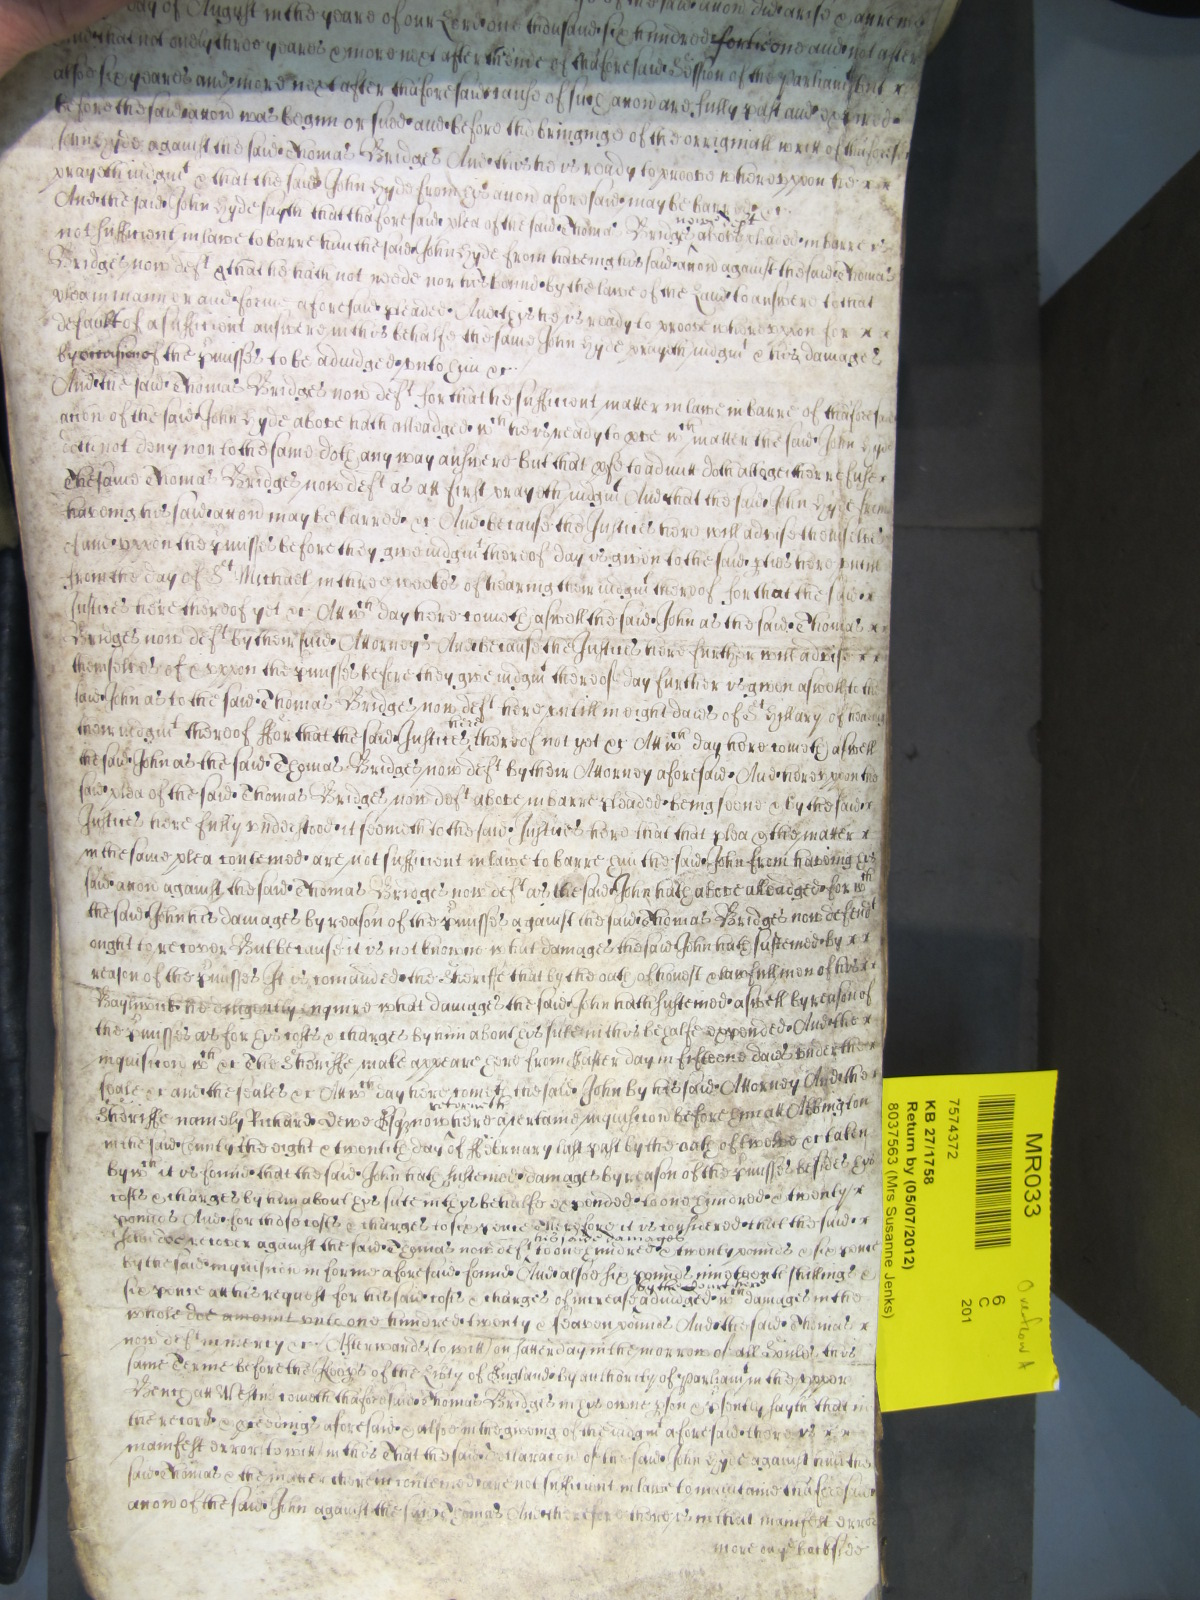 day of August in the yeare of our Lord one thousand six hundred fortie one and not after
and that not onely three yeares & more next after the end of thaforesaid Session of the parliamt but x
also six yeares and more next after thaforesaid cause of such accon are fully past and expired
before the said accon was begun or sued and before the bringinge of the originall writt of thaforesaid
John Hyde against the said Thomas Bridges And this he is ready to proove whereuppon he x x
prayeth iudgmt & that the said John Hyde from his accon aforesaid may be barred &c
And the said John Hyde sayth that thaforesaid plea of the said Thomas Bridges now deft above pleaded in barre is
not sufficient in lawe to barre him the said John Hyde from haveing his said accon against the said Thomas
Bridges now deft & that he hath not neede nor is bound by the lawe of the Land to answere to that
plea in manner and forme aforesaid pleaded And this he is ready to proove whereuppon for x x
default of a sufficient answere in this behalfe the same John Hyde prayeth iudgmt & his damages
by occasion of the pmisses to be adiudged unto him &c
And the said Thomas Bridges now deft for that he sufficient matter in lawe in barre of thaforesaid
accon of the said John Hyde above hath alleadged wch he is ready to prove wch matter the said John Hyde
doth not deny nor to the same doth any way answere but that to admitt doth altogether refuse
The same Thomas Bridges now deft as att first prayeth iudgmt And that the said John Hyde from
haveing his said accon may be barred &c And because the Justices here will advise themselves
of and uppon the pmisses before they give iudgmt thereof day is given to the said pties here untill
from the day of St Michael in three weekes of hearing their iudgmt thereof for that the said x
Justices here thereof yet &c Att wch day here cometh aswell the said John as the said Thomas x x
Bridges now deft by their said Attorneys And because the Justices here further will advise x x
themselves of & uppon the pmisses before they give iudgmt thereof day further is given aswell to the
said John as to the said Thomas Bridges now deft here untill in eight daies of St Hillary of hearing
their iudgmt thereof ffor that the said Justices here thereof not yet &c Att wch day here cometh aswell
the said John as the said Thomas Bridges now deft by their Attorney aforesaid And hereuppon the
said plea of the said Thomas Bridges now deft above in barre pleaded being seene & by the said x
Justices here fully understood it seemeth to the said Justices here that that plea & the matter x
in the same plea conteined are not sufficient in lawe to barre him the said John from haveing his
said accon against the said Thomas Bridges now deft as the said John hath above alleadged for wch
the said John his damages by reason of the pmisses against the said Thomas Bridges now defendt
ought to recover But because it is not knowne what damages the said John hath susteined by x x
reason of the pmisses It is comanded the Sheriffe that by the oath of honest & lawfull men of his x
Baylywick he diligently inquire what damages the said John hath susteined aswell by reason of
the pmisses as for his costs & charges by him about his suite in this behalfe expended And the x
inquisicon wch &c The Sheriffe make appeare here from Easter day in fifteene daies under the x
seale &c and the seales &c Att wch day here cometh the said John by his said Attorney And the
Sheriffe namely Richard Esqr now here returneth a certaine inquisicon before him att Abbington
in the said County the eight & twentith day of ffebruary last past by the oath of twelve &c taken
by wch it is found that the said John hath susteined damages by reason of the pmisses besides his
costs & charges by him about his suite in this behalfe expended to one hundred & twenty x
pounds And for those costs & charges to six pence Therefore it is considered that the said x
John doe recover against the said Thomas now deft his said damages to one hundred & twenty pounds & six pence
by the said inquisicon in forme aforesaid found And also six pounds nineteene shillings &
six pence att his request for his said costs & charges of increase by the Court here adiudged wch damages in the
whole doe amount unto one hundred twenty & seaven pounds And the said Thomas x
now deft in mercy &c Afterwards to witt on Satterday in the morrow of all Soules this
same Terme before the Keeps of the Libty of England by authority of parliamt in the upper
Bench att Westmr cometh thaforesaid Thomas Bridges in his owne pson & psently sayth that in
the record & pceedings aforesaid & also in the giveing of the iudgmt aforesaid there is x x
manifest error to witt in this That the said Declaracon of the said John Hyde against him the
said Thomas & the matter therein conteined are not sufficient in lawe to mainteine thaforesaid
accon of the said John against the said Thomas And therefore there is in that manifest error
more on ye backside
MR033
Overflow A
6
C
201
7574372
KB 27/1758
Return by (05/07/2012)
8037563 (Mrs Susanne Jenks)